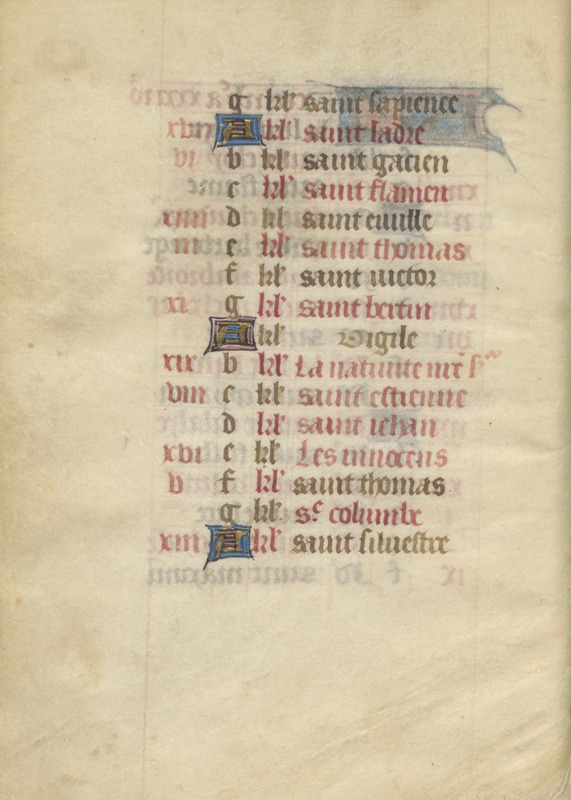 g kl' saint sapience
xviii A kl' saint ladre
vi b kl' saint gacien
c kl' saint flamen
xiiii d kl' saint euuille
iii e kl' saint thomas
f kl' saint uictor
xi g kl' saint bertin
A kl' Vigile
xix b kl' La natiuite nr̃e sr̃
viii c kl' saint estienne
d kl' saint iehan
xvi e kl' Les innocens
v f kl' saint thomas
g kl' sc̃ columbe
xiii A kl' saint siluestre